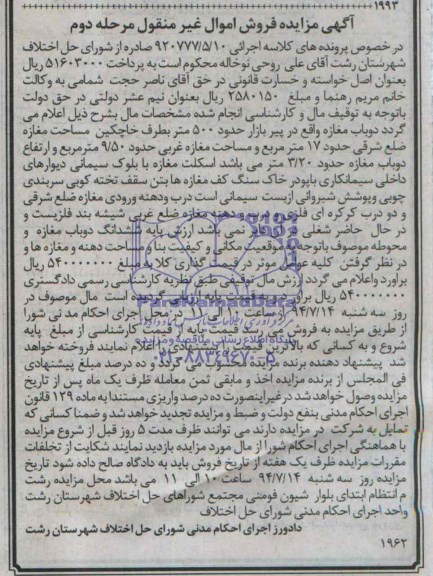 ۱۹۹۳
آگهی مزایده فروش اموال غیر منقول مرحله دوم
در خصوص پرونده های کلاسه اجرائی ۹۲۰۷۷۷/۵/۱۰ صادره از شورای حل اختلاف
شهرستان رشت آقای علی روحی نوخاله محکوم است به پرداخت ۵۱۶۰۳۰۰۰ ریال
بعنوان اصل خواسته و خسارت قانونی در حق آقای ناصر حجت شمامی به وکالت
خانم مریم رهنما و مبلغ ۲۵۸۰۱۵۰ ریال بعنوان نیم عشر دولتی در حق دولت
باتوجه به توقیف مال و کارشناسی انجام شده مشخصات مال بشرح ذیل اعلام می
گردد دوباب مغازه واقع در پیر بازار حدود ۵۰۰ متر بطرف خاچکین مساحت مغازه
ضلع شرقی حدود ۱۷ متر مربع و مساحت مغازه غربی حدود ۹/۵۰ مترمربع و ارتفاع
دوباب مغازه حدود ۳/۲۰ متر می باشد اسکلت مغازه با بلوک سیمانی دیوارهای
داخلی سیمانکاری باپودر خاک سنگ کف مغازه ها بتن سقف تخته کوبی سربندی
چوبی وپوشش شیروانی ازبست سیمانی است درب ودهنه ورودی مغازه ضلع شرقی
و دو درب کرکره ای فلزی و درب و دهنه مغازه ضلع غربی شیشه بند فلزیست و
در حال حاضر شغلی در آن دایر نمی باشد ارزش پایه ششدانگ دوباب مغازه و
محوطه موصوف باتوجه به موقعیت مکانی و کیفیت بنا و مساحت دهنه و مغازه ها و
در نظر گرفتن کلیه عوامل موثر در قیمت گذاری کلا به مبلغ ۵۴۰۰۰۰۰۰۰ ریال
برآورد واعلام می گردد ارزش مال توقیفی طبق نظریه کارشناسی رسمی دادگستری
۵۴۰۰۰۰۰۰۰ ریال برآورد گردیده است مال موصوف در
روز سه شنبه ۹۴/۷/۱۴ از ساعت ۱۰ الی ۱۱ در محل اجرای احکام مدنی شورا
از طریق مزایده به فروش می رسد قیمت پایه از قیمت کارشناسی از مبلغ پایه
شروع و به کسانی که بالاترین قیمت را پیشنهاد و اعلام نمایند فروخته خواهد
شد پیشنهاد دهنده برنده مزایده محسوب می گردد و ده درصد مبلغ پیشنهادی
فی المجلس از برنده مزایده اخذ و مابقی ثمن معامله ظرف یک ماه پس از تاریخ
مزایده وصول خواهد شد در غیراینصورت ده درصد واریزی مستندا به ماده ۱۲۹ قانون
اجرای احکام مدنی بنفع دولت و ضبط و مزایده تجدید خواهد شد و ضمنا کسانی که
تمایل به شرکت در مزایده دارند می توانند ظرف مدت ۵ روز قبل از شروع مزایده
با هماهنگی اجرای احکام شورا از مال مورد مزایده بازدید نمایند شکایت از تخلفات
مقررات مزایده ظرف یک هفته از تاریخ فروش باید به دادگاه صالح داده شود تاریخ
مزایده روز سه شنبه ۹۴/۷/۱۴ ساعت ۱۰ الی ۱۱ می باشد محل مزایده رشت
م انتظام ابتدای بلوار شیون فومنی مجتمع شوراهای حل اختلاف شهرستان رشت
واحد اجرای احکام مدنی شورای حل اختلاف
دادورز اجرای احکام مدنی شورای حل اختلاف شهرستان رشت
۱۹۶۲
۰۲۱-۸۸۳۴۹۶۷۰-۵